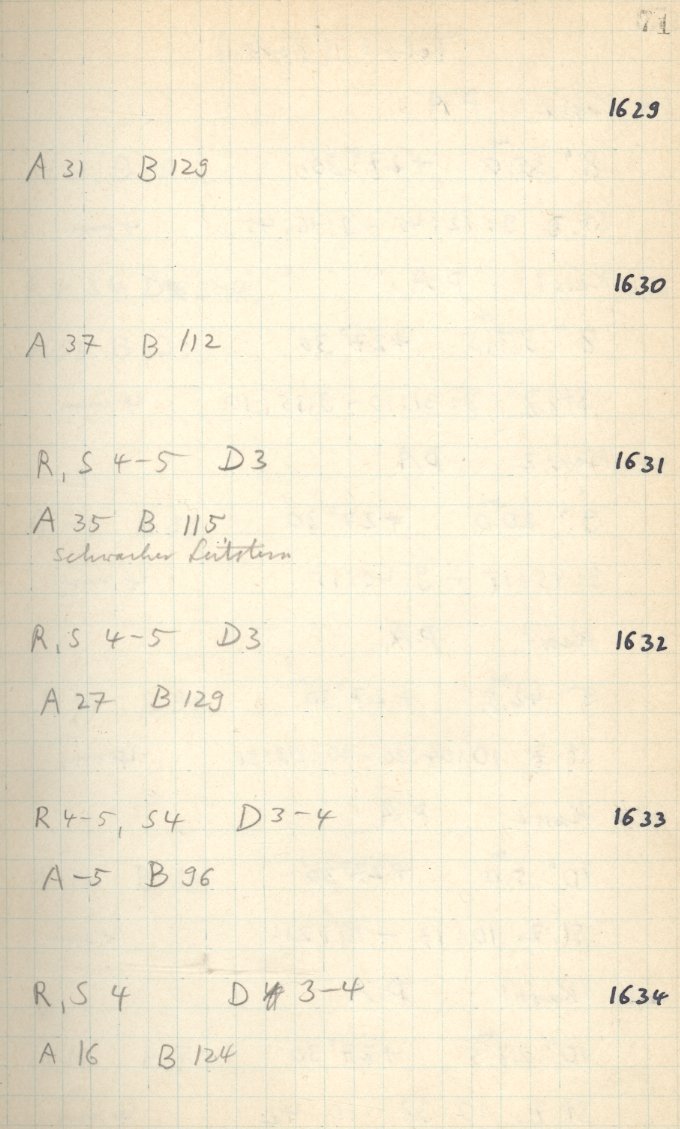 71
1629
A 31 B 129
1630
A 37 B 112
R, S 4-5 D 3 1631
A 35 B 115
schwacher Leitstern
R, S 4-5 D 3 1632
A 27 B 129
R 4-5, S 4 D 3-4 1633
A -5 B 96
R, S 4 D 3-4 1634
A 16 B 124